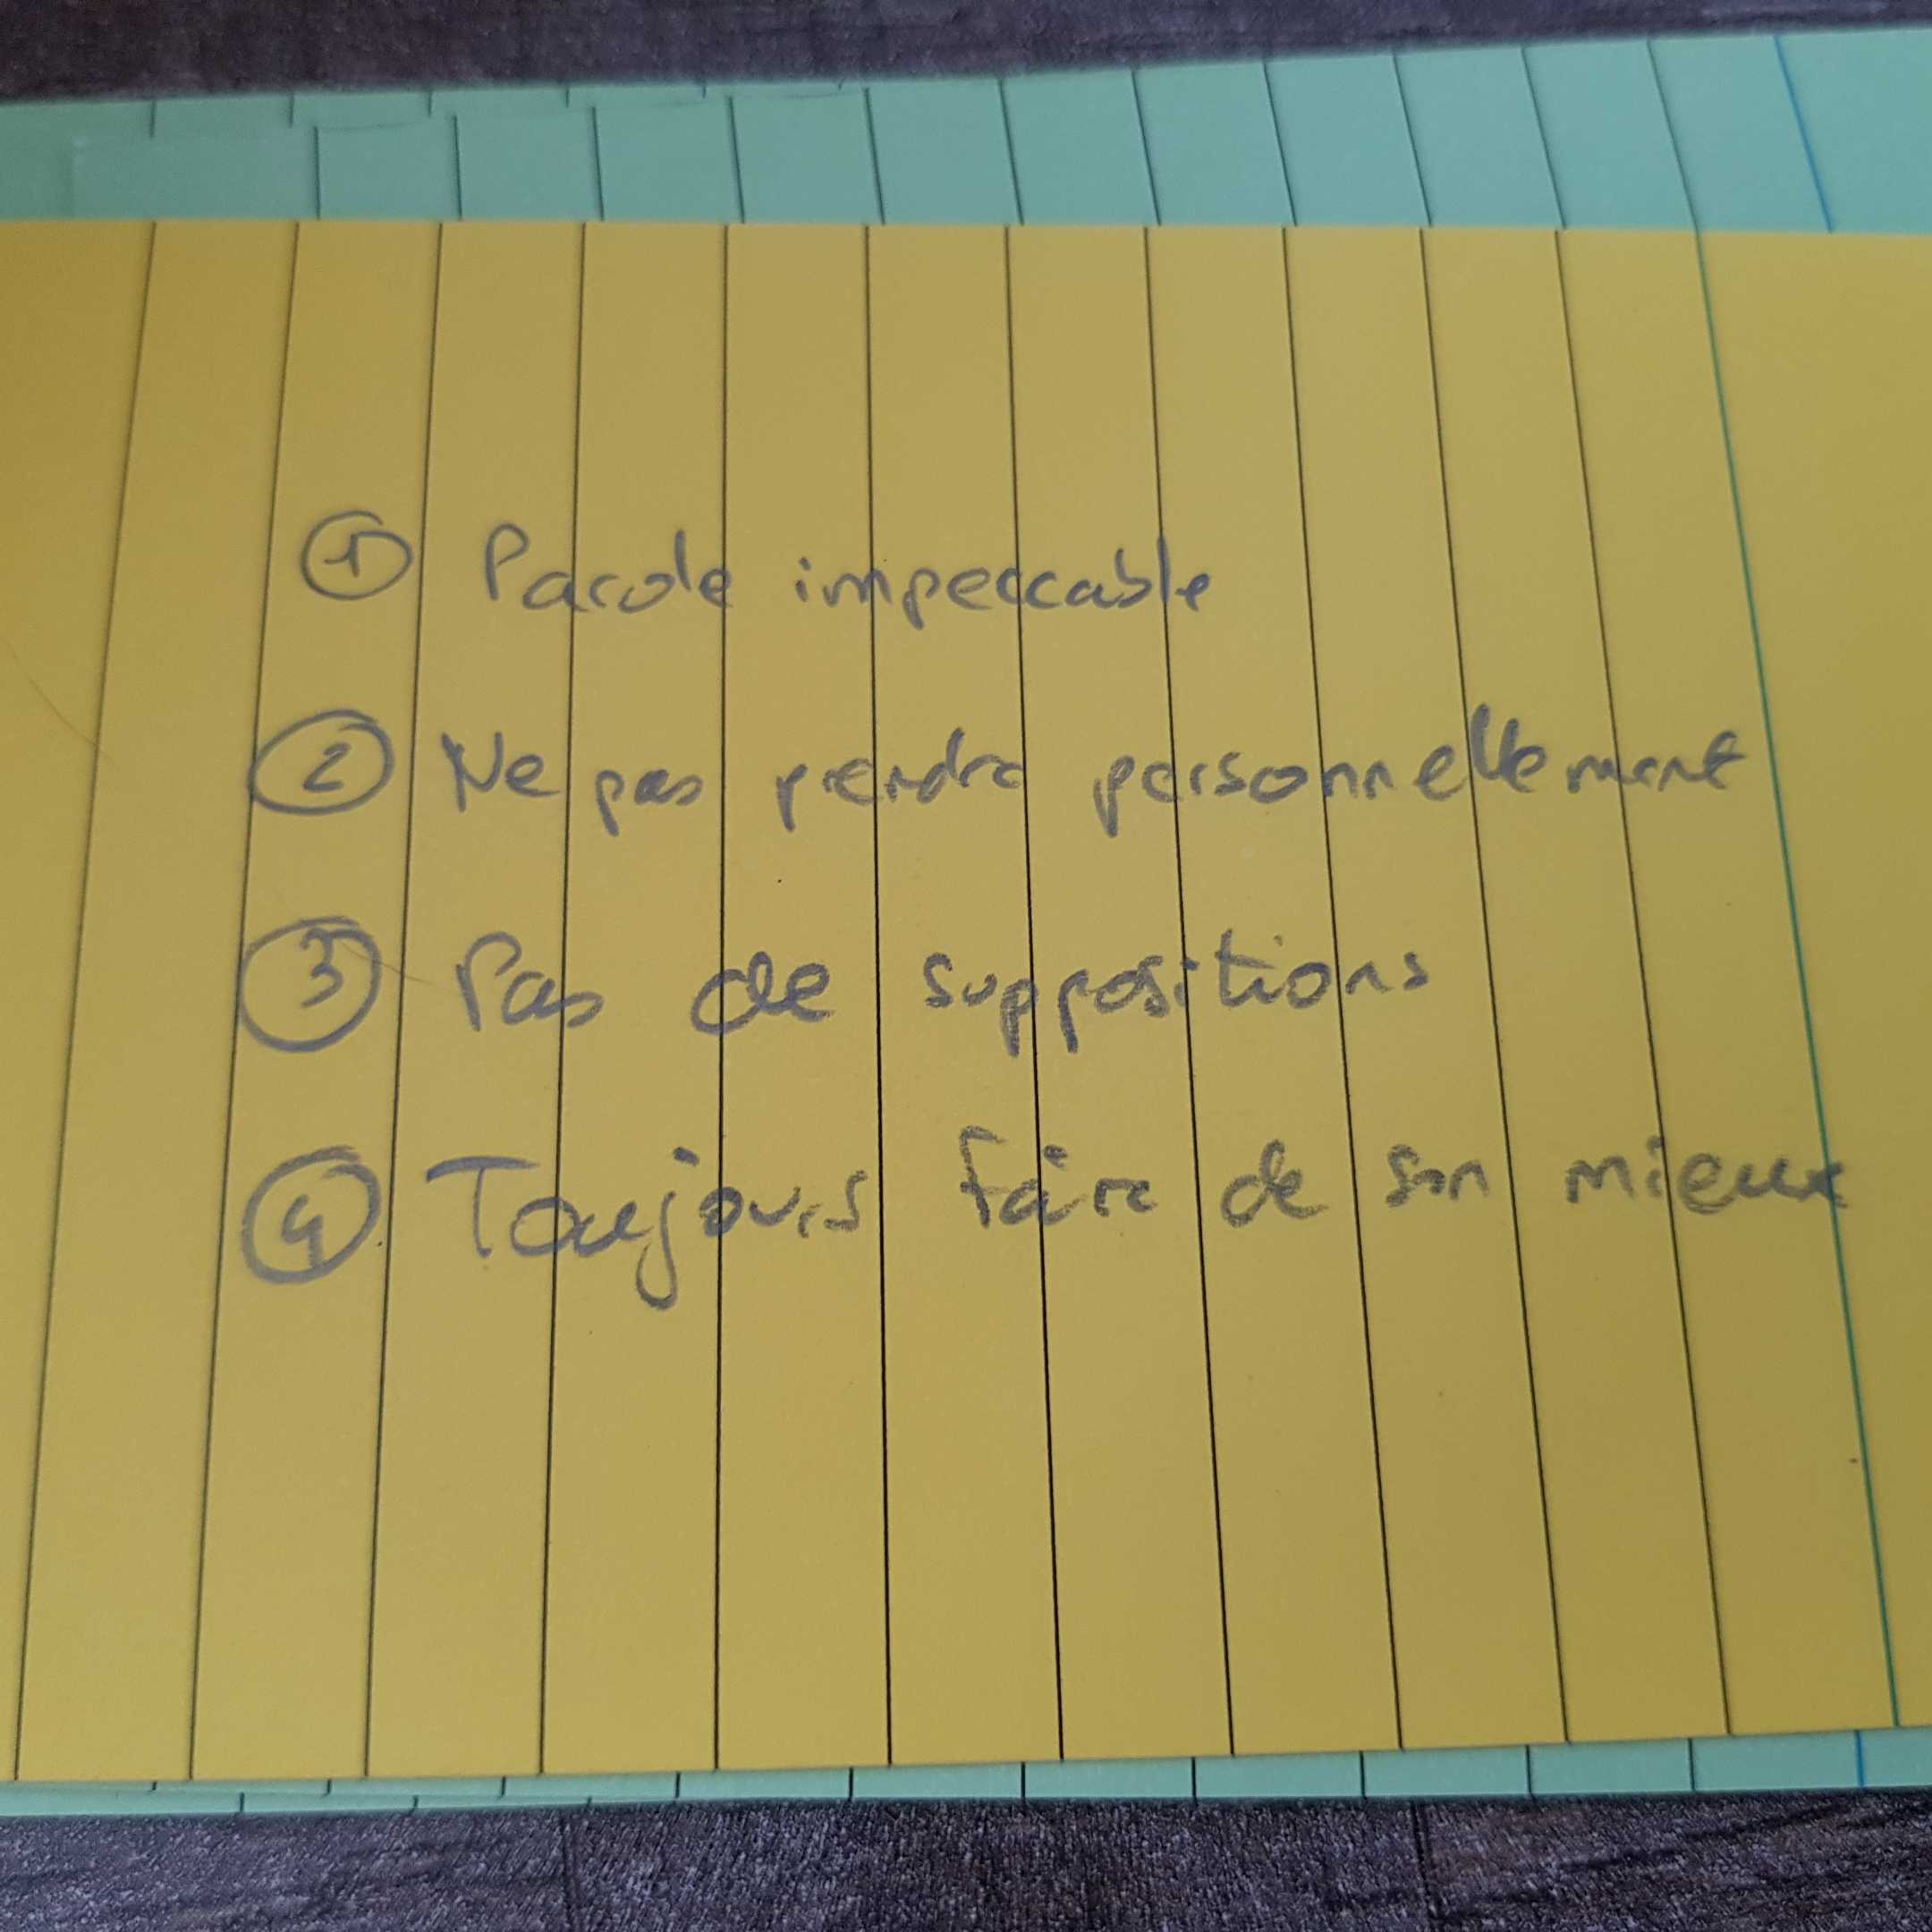 ① Parole impeccable
② Ne pas prendre personnellement
③ Pas de suppositions
④ Toujours faire de son mieux